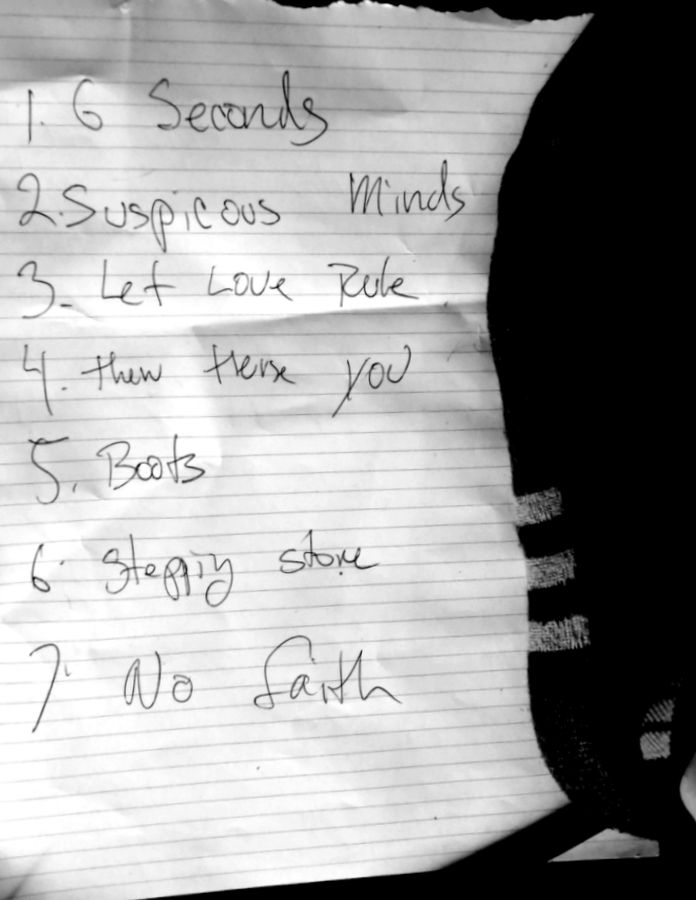 1. 6 Seconds
2. Suspicous Minds
3. Let Love Rule
4. then there you
5. Boots
6. Steppig stone
7. No faith